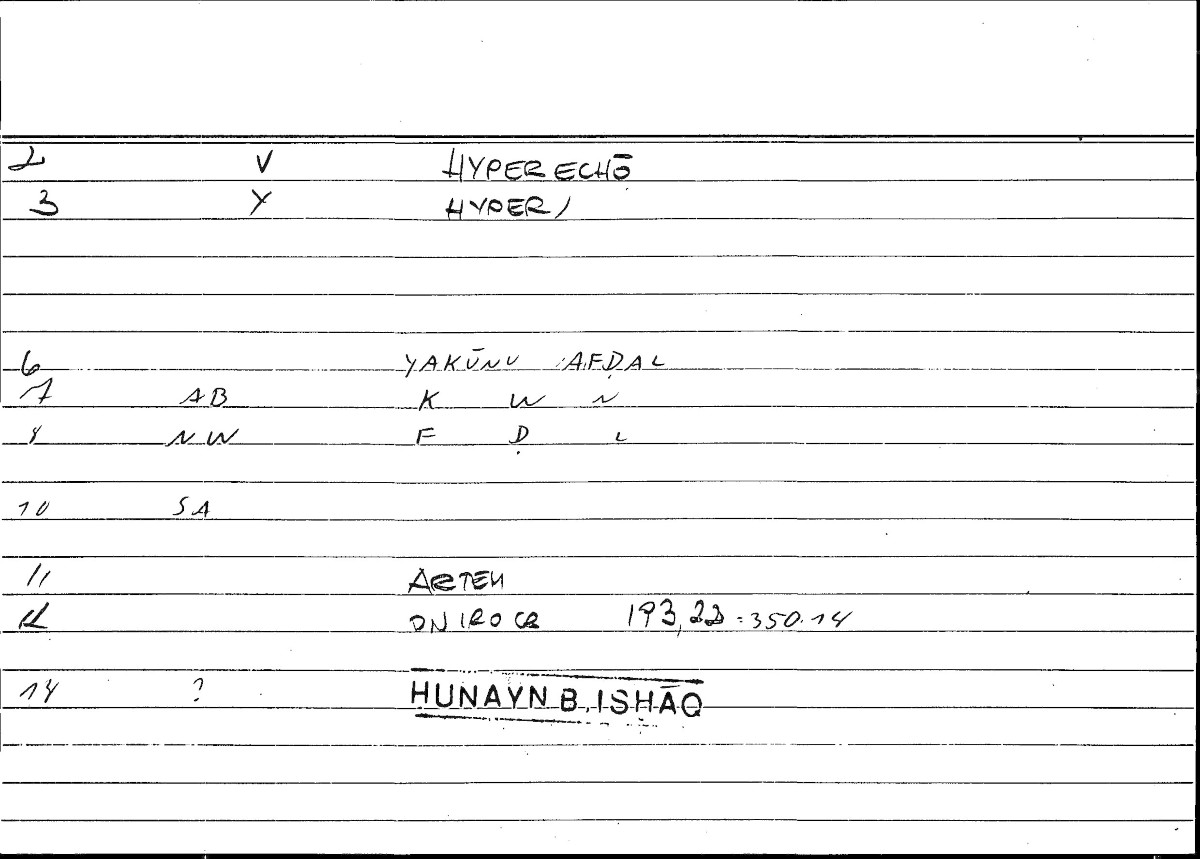 2 V HYPERECHŌ
3 Y HYPER/
6 YAKŪNU AFḌAL
7 AB K W N
8 NW F Ḍ L
10 SA
11 ARTEM
12 ONIROCR 193,22 = 350.14
14 ? HUNAYN B. ISHĀQ